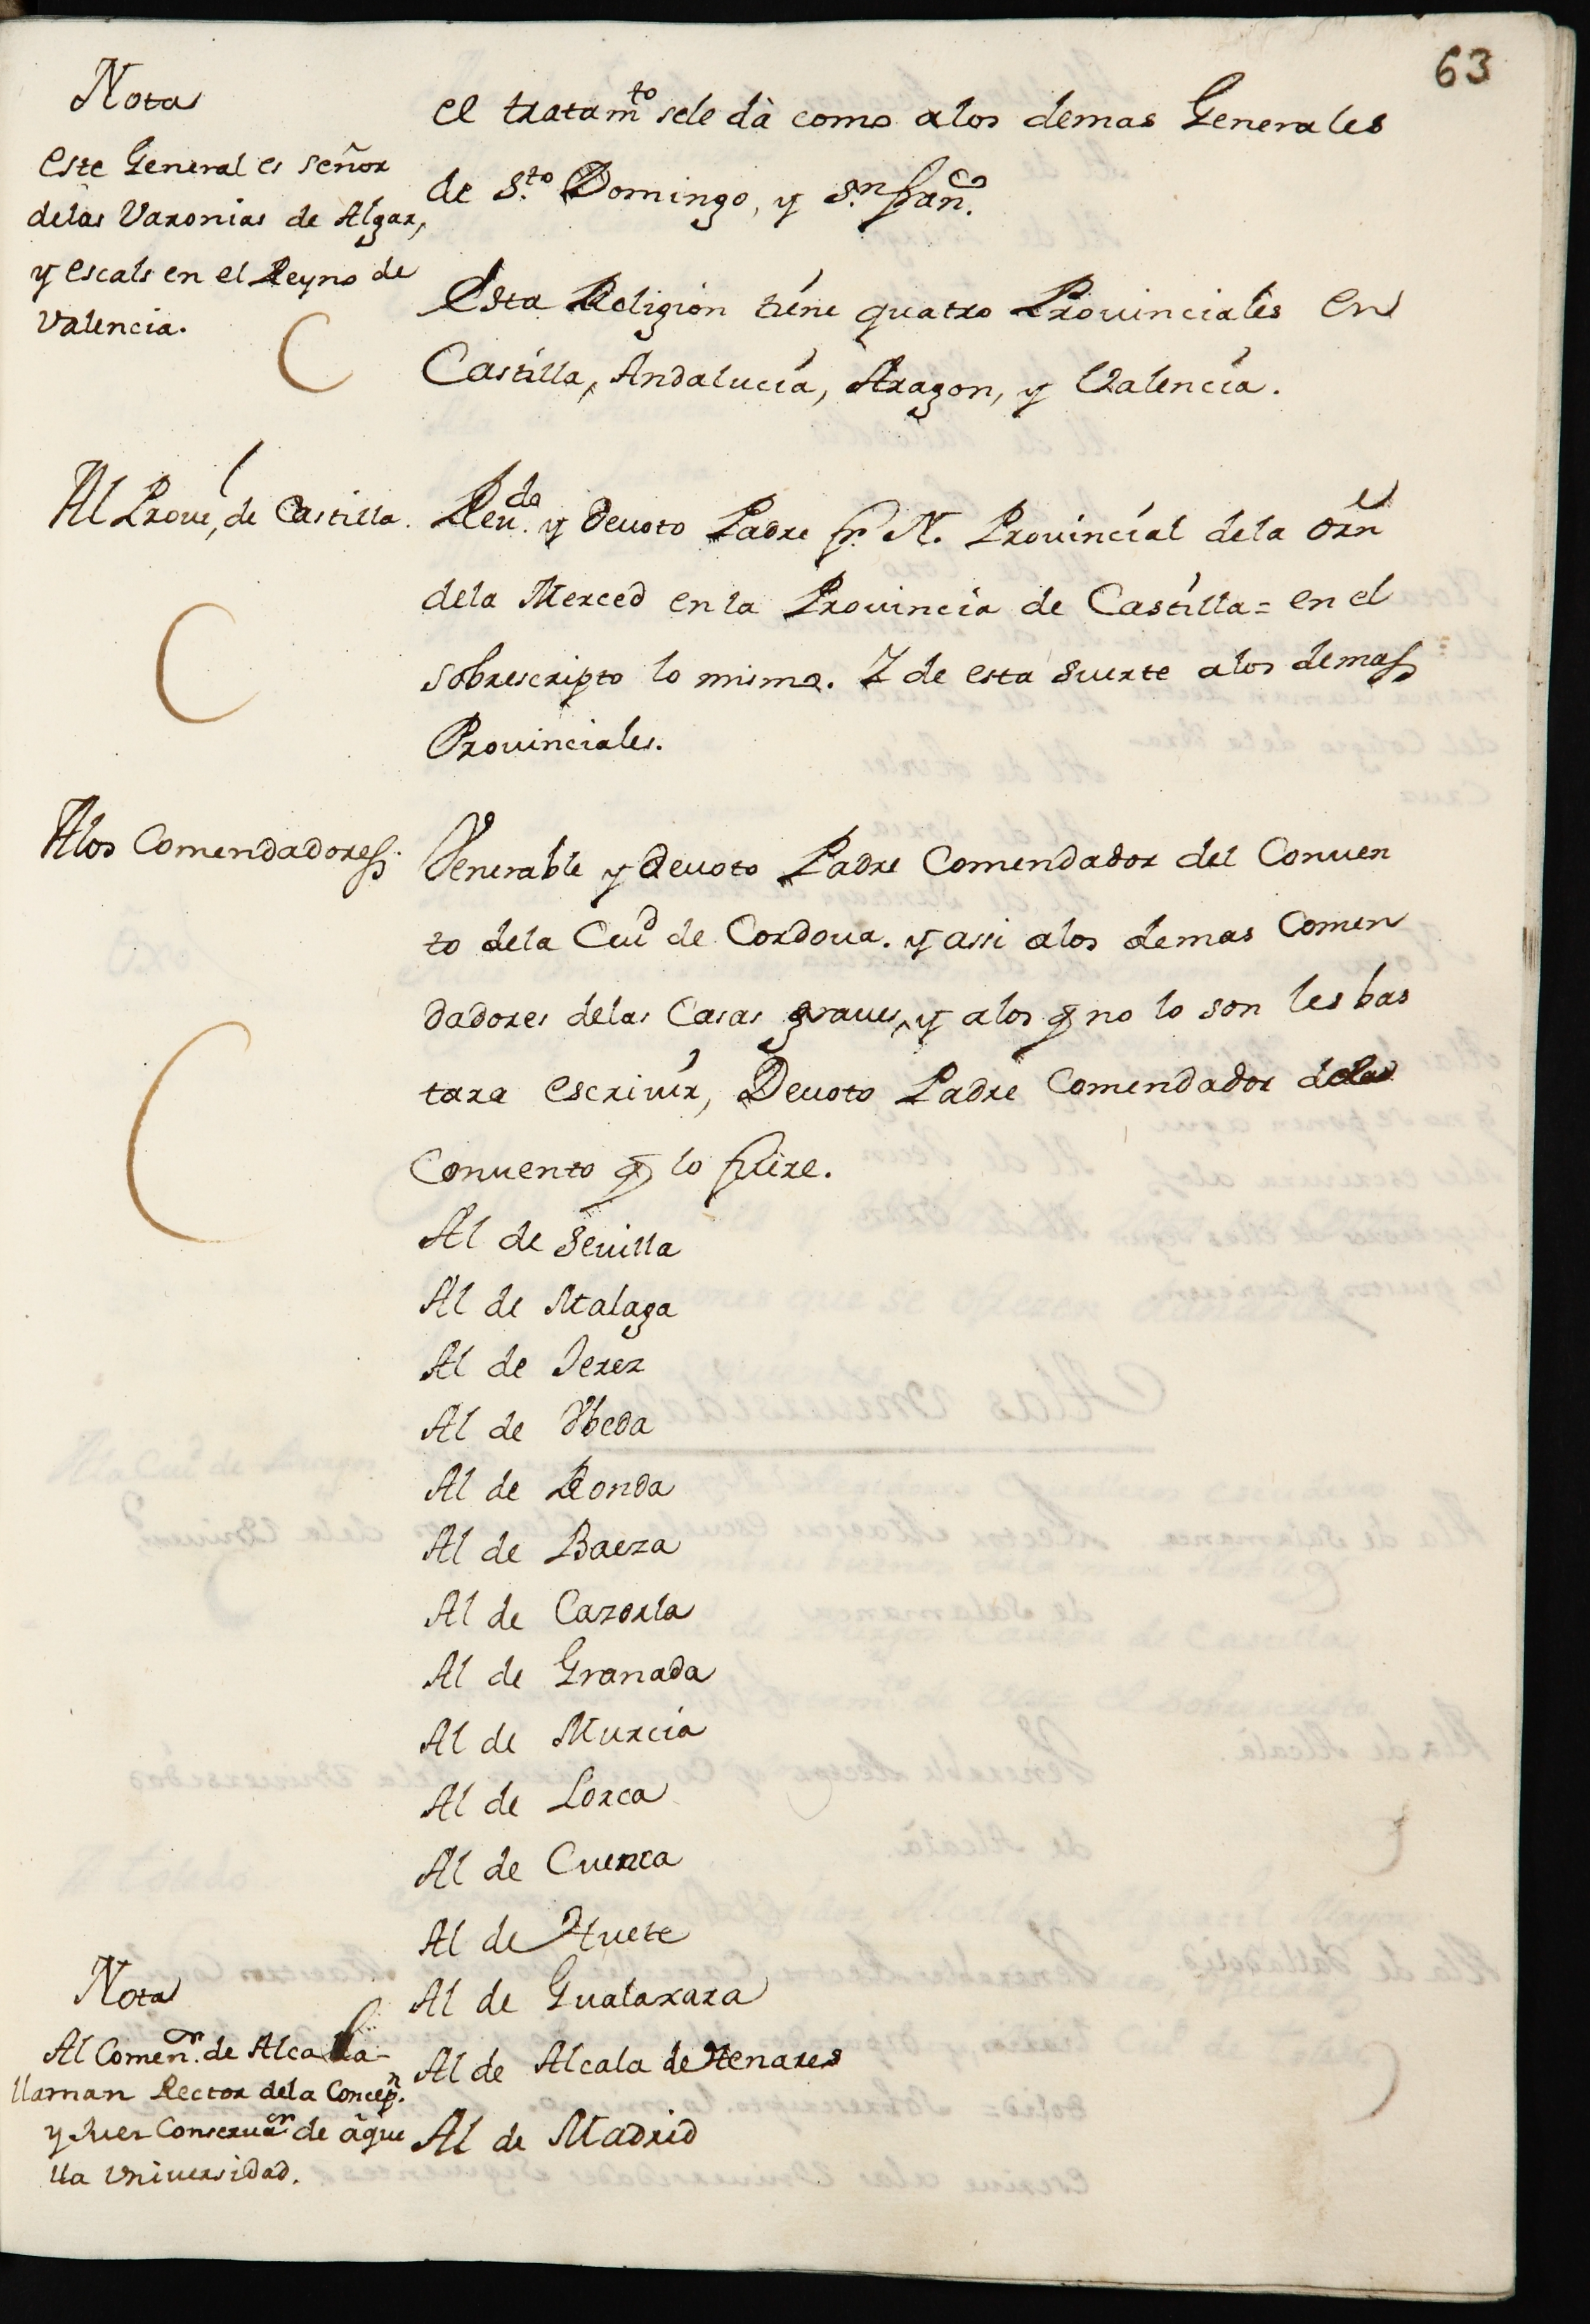 63
Nota
este General es señor
delas Varonias de Algar,
y escals en el Reyno de
Valencia.
el tratamto sele dà como alos demas Generales
de S.to Domingo, y S.n Fran.co
Esta Religion tiene quatro Prouinciales en
Castilla, Andalucia, Aragon, y Valencia.
Al Prouil, de Castilla.
Reu.do y Deuoto Padre fr. N. Prouincial dela orn
dela Merced en la Prouincia de Castilla = en el
sobrescripto lo mismo. Y de esta suerte alos demas
Prouinciales.
Alos Comendadores.
Venerable y Deuoto Padre Comendador del Conuen
to dela Ciud de Cordoua. y assi alos demas Comen
dadores delas Casas graues, y alos q no lo son les bas
tara escriuir, Deuoto Padre Comendador del
Conuento q lo fuere.
Al de Seuilla
Al de Malaga
Al de Jerez
Al de Vbeda
Al de Ronda
Al de Baeza
Al de Cazorla
Al de Granada
Al de Murcia
Al de Lorca
Al de Cuenca
Al de Huete
Al de Gualaxara
Al de Alcala de Henares
Al de Madrid
Nota
Al Comen.or de Alcala
llaman Rector dela Concep.n
y Juez Conseruaor de aque
lla Vniuersidad.